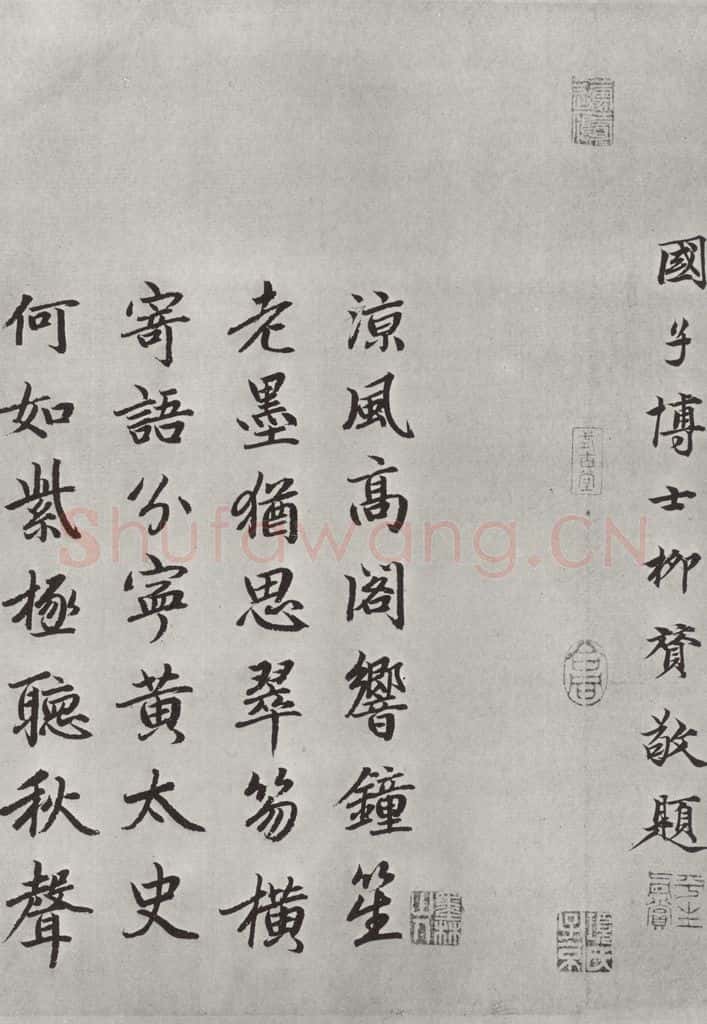 國子博士柳贇敬題
涼風高閣響鐘笙
老墨猶思翠笏橫
寄語分寧黃太史
何如紫極聽秋聲
Shufawang.CN